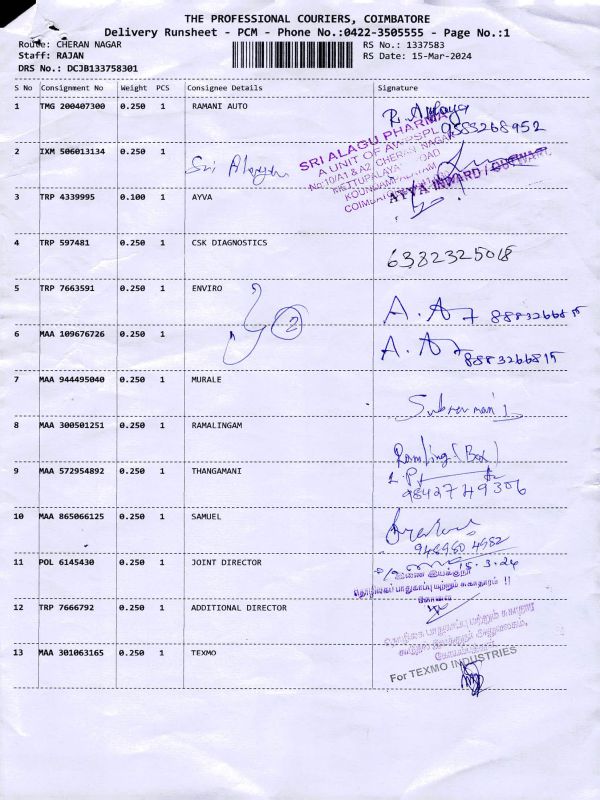 THE PROFESSIONAL COURIERS, COIMBATORE
Delivery Runsheet - PCM - Phone No.:0422-3505555 - Page No.:1
Route: CHERAN NAGAR RS No.: 1337583
Staff: RAJAN RS Date: 15-Mar-2024
DRS No.: DCJB133758301
S No Consignment No Weight PCS Consignee Details Signature
1 TMG 200407300 0.250 1 RAMANI AUTO
9583268952
2 IXM 506013134 0.250 1 Sri
SRI ALAGU PHARMA
A UNIT OF
CHERAN NAGAR
3 TRP 4339995 0.100 1 AYVA AYVA INWARD /
4 TRP 597481 0.250 1 CSK DIAGNOSTICS 6382325018
5 TRP 7663591 0.250 1 ENVIRO 8883266815
2
6 MAA 109676726 0.250 1 8883266815
7 MAA 944495040 0.250 1 MURALE
8 MAA 300501251 0.250 1 RAMALINGAM
Ramling (Box)
9 MAA 572954892 0.250 1 THANGAMANI
9842749306
10 MAA 865066125 0.250 1 SAMUEL
948980 4982
11 POL 6145430 0.250 1 JOINT DIRECTOR 15.3.24
இணை இயக்குநர்
தொழிலகப் பாதுகாப்பு மற்றும் சுகாதாரம் !!
கோவை
12 TRP 7666792 0.250 1 ADDITIONAL DIRECTOR
13 MAA 301063165 0.250 1 TEXMO
For TEXMO INDUSTRIES